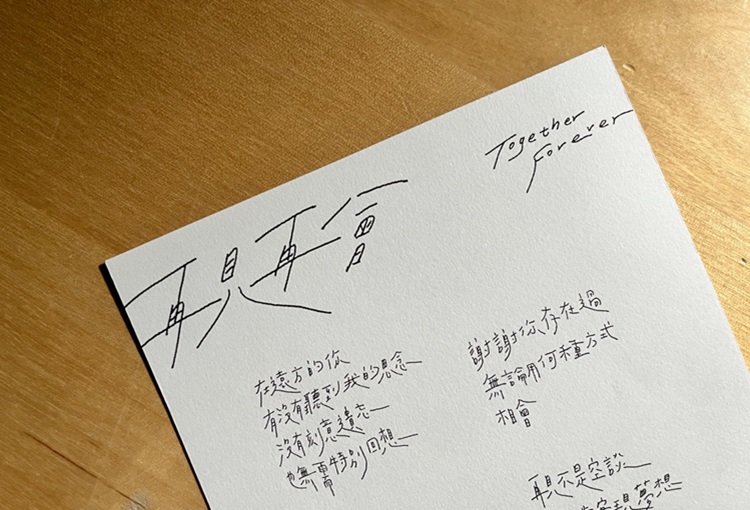 Together
Forever
再見再會
在遠方的你
有沒有聽到我的思念
沒有刻意遺忘
也無需特別回想
謝謝你存在過
無論用何種方式
相會
再見不是空談
實現夢想